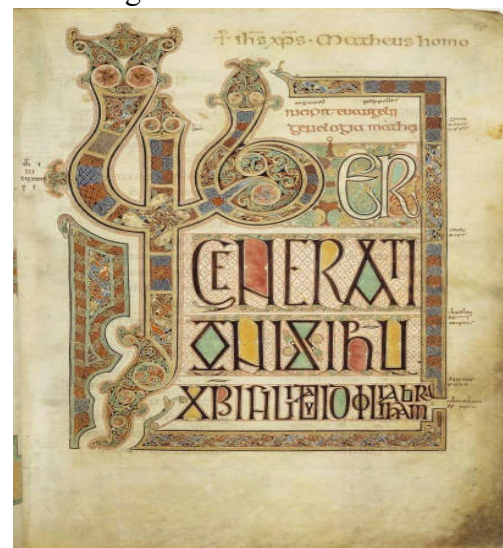 + ihs xps · Matheus homo
incipit euangelii
genelogia mathei
LIBER
GENERATI
ONIS IHU
XPI FILII DAVID FILII ABRAHAM